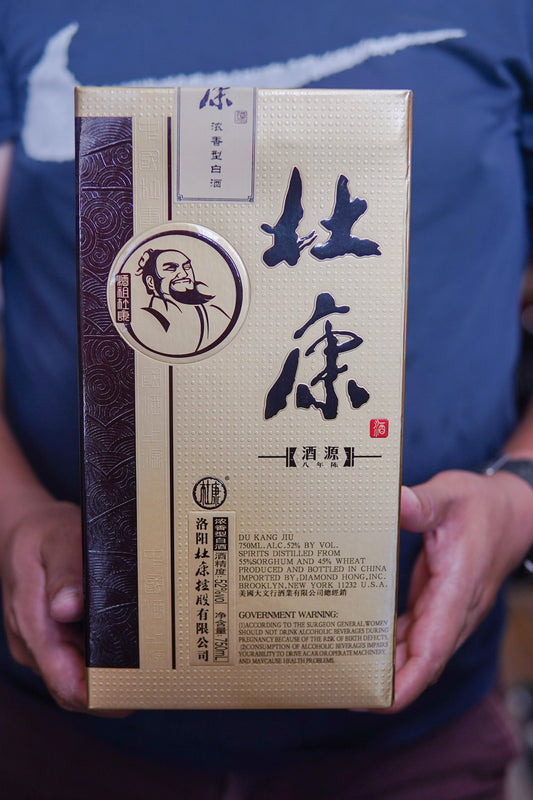 康
浓香型白酒
杜康
酒祖杜康
酒
酒源
八年陈
杜康
洛阳杜康控股有限公司
浓香型白酒 酒精度:52%vol 净含量:750mL
DU KANG JIU
750ML. ALC.52% BY VOL.
SPIRITS DISTILLED FROM
55%SORGHUM AND 45% WHEAT
PRODUCED AND BOTTLED IN CHINA
IMPORTED BY:DIAMOND HONG,INC.
BROOKLYN, NEW YORK 11232 U.S.A.
美國大文行酒業有限公司總經銷
GOVERNMENT WARNING:
(1)ACCORDING TO THE SURGEON GENERAL,WOMEN
SHOULD NOT DRINK ALCOHOLIC BEVERAGES DURING
PREGNANCY BECAUSE OF THE RISK OF BIRTH DEFECTS.
(2)CONSUMPTION OF ALCOHOLIC BEVERAGES IMPAIRS
YOUR ABILITY TO DRIVE A CAR OR OPERATE MACHINERY,
AND MAY CAUSE HEALTH PROBLEMS.